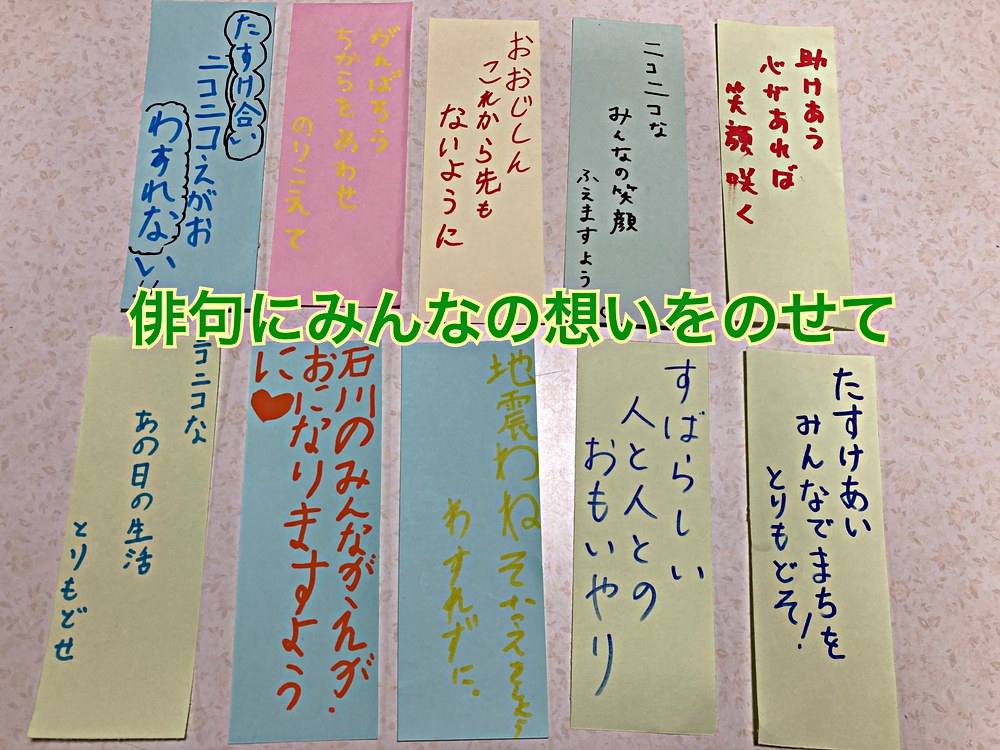 助けあう
心があれば
笑顔咲く
ニコニコな
みんなの笑顔
ふえますよう
おおじしん
これから先も
ないように
がんばろう
ちからをあわせ
のりこえて
たすけ合い
ニコニコえがお
わすれない!!
俳句にみんなの想いをのせて
たすけあい
みんなでまちを
とりもどそ!
すばらしい
人と人との
おもいやり
地震わね そなえ
わすれずに。
石川のみんながえが.
おになりますよう
に♥
ニコニコな
あの日の生活
とりもどせ